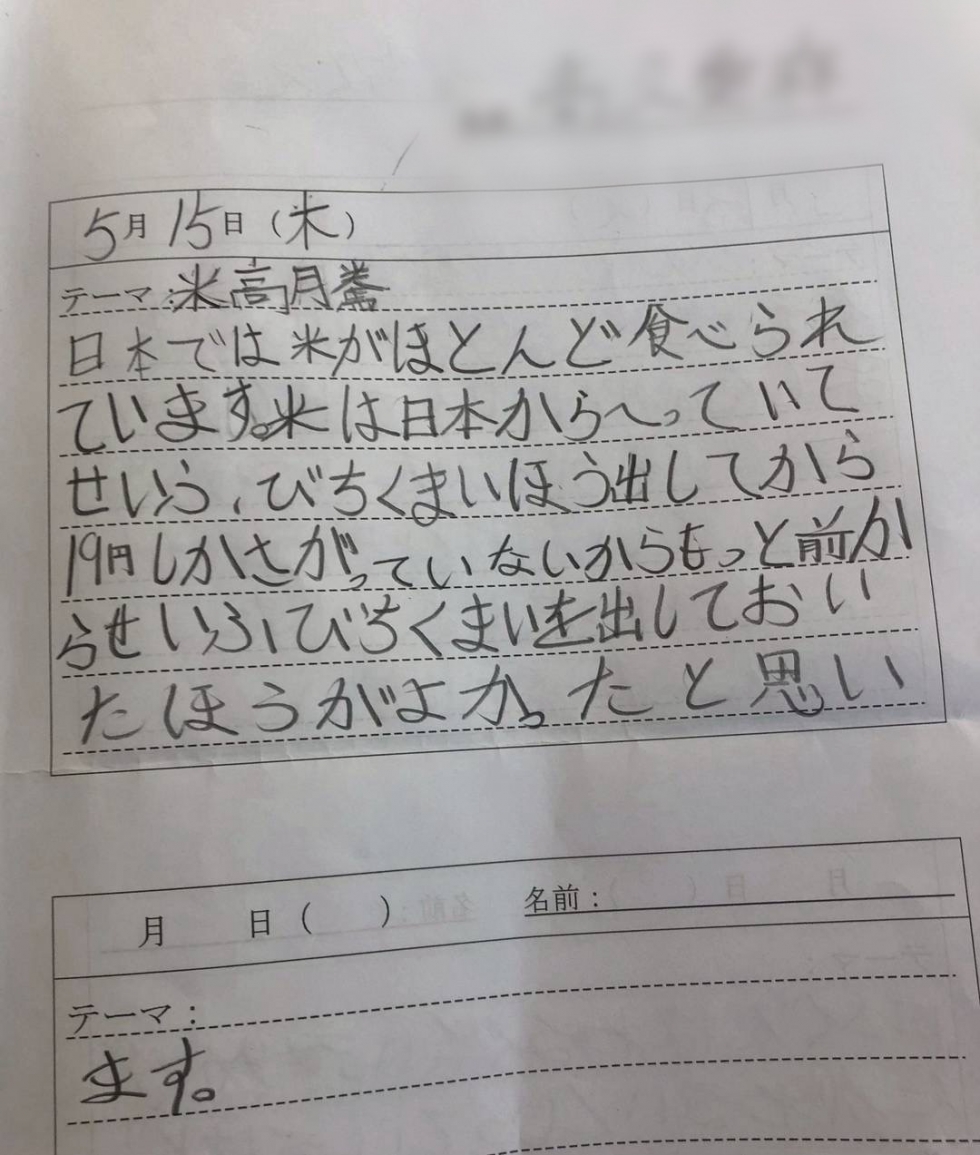 5月15日（木）
テーマ：米高月騰
日本では米がほとんど食べられ
ています。米は日本からへっていて
せいふ、びちくまいほう出してから
19円しかさがっていないからもっと前か
らせいふ、びちくまいを出しておい
たほうがよかったと思い
月 日（ ） 名前：
テーマ：
ます。